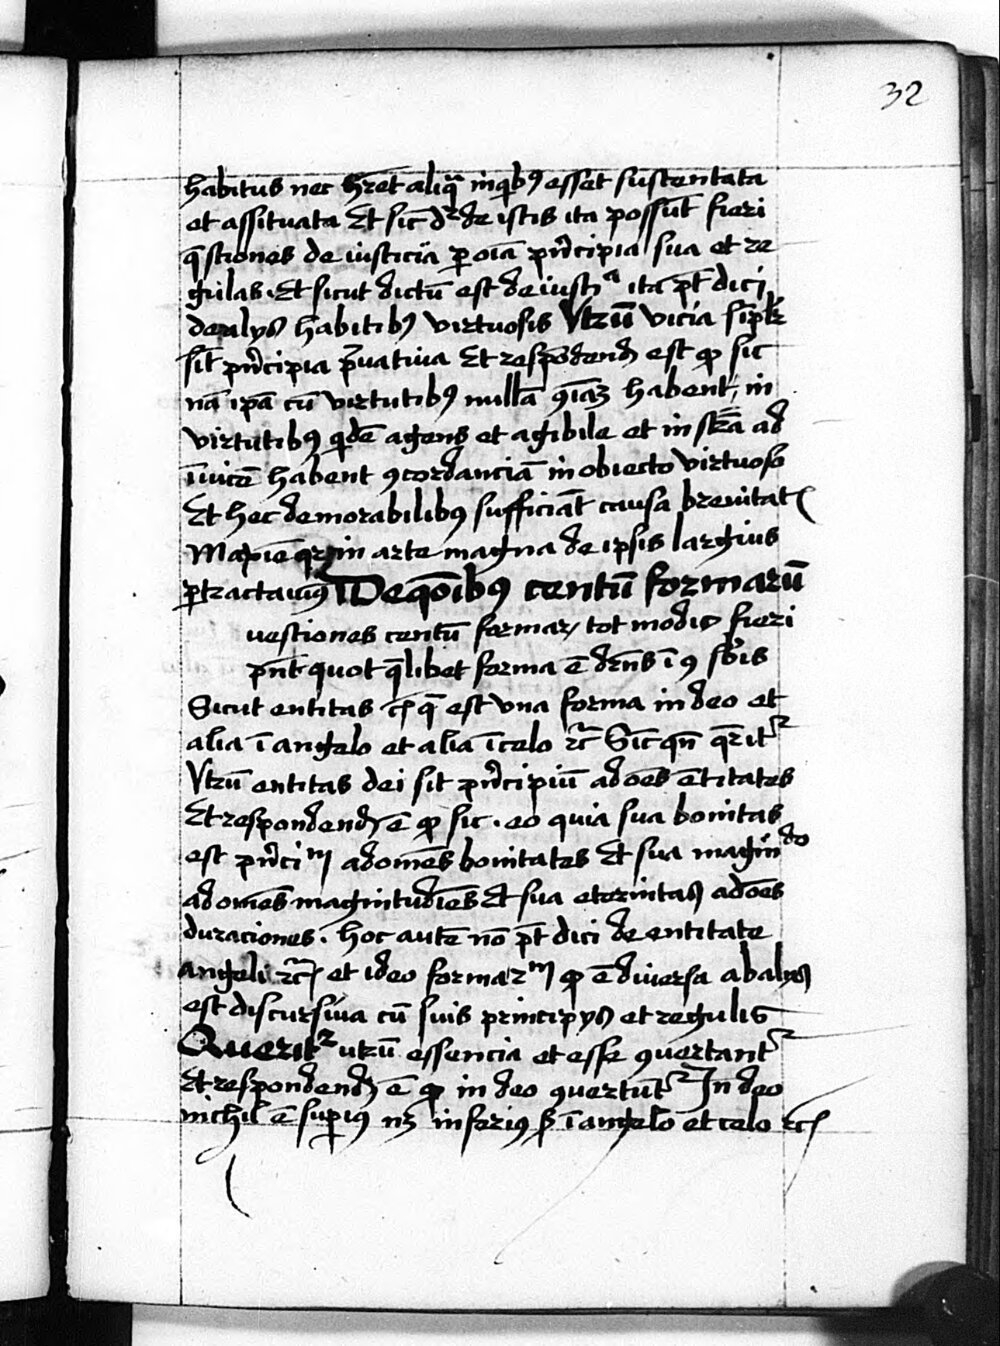 32
habitus nec hr̄et aliq̄ inqⁱbꝰ esset sustentata
et assituata Et sic dr̄ de istis ita possūt fieri
q̄stiones de iusticia p oīa prīcipia sua et re
gulas. Et sicut dictū est de iustiᵃ ita pt̄ dici
de alijs habitibꝰ virtuosis Vtrū vicia simplr̄
sīt prīcipia pͥuatiua Et respōdendū est ꝙ sic
nā ipā cū virtutibꝰ nullā ꝯ habent, in
virtutibꝰ qͥdē agens et agibile et ad
īuicē habent ꝯcordanciā in obiecto virtuoso
Et hec de morabilibꝰ sufficiāt causa breuitatꝭ
in arte magna de ipsis largius
ꝑtractauimꝰ De qōnibꝰ centū formarū
uestiones centū formaꝝ tot modis fieri
pn̄t quot q̄libet forma ē dr̄ns ī
Sicut entitas q̄ est vna forma in deo et
alia ī angelo et alia ī celo ꝛc̄ Sic qn̄ querit᷑
Vtrū entitas dei sit prīcipiū ad oēs ētitates
Et respondendū ē ꝙ sic. eo quia sua bonitas
est prīciᵐ ad omēs bonitates Et sua magᵈᵒ
ad omēs magnitudīes Et sua eternitas ad oēs
duraciones. hoc autē nō pt̄ dici de entitate
angeli ꝛc̄ et ideo ꝙ ē diuersa ab alijs
est discursiua cū suis principijs et regulis
Querit᷑ utrū essencia et esse ꝯuertant᷑
Et respondendū ē ꝙ in deo ꝯuertūt᷑ In deo
nichil ē supiꝰ nꝫ inferiꝰ ꝫ ī angelo et celo ꝛc̄